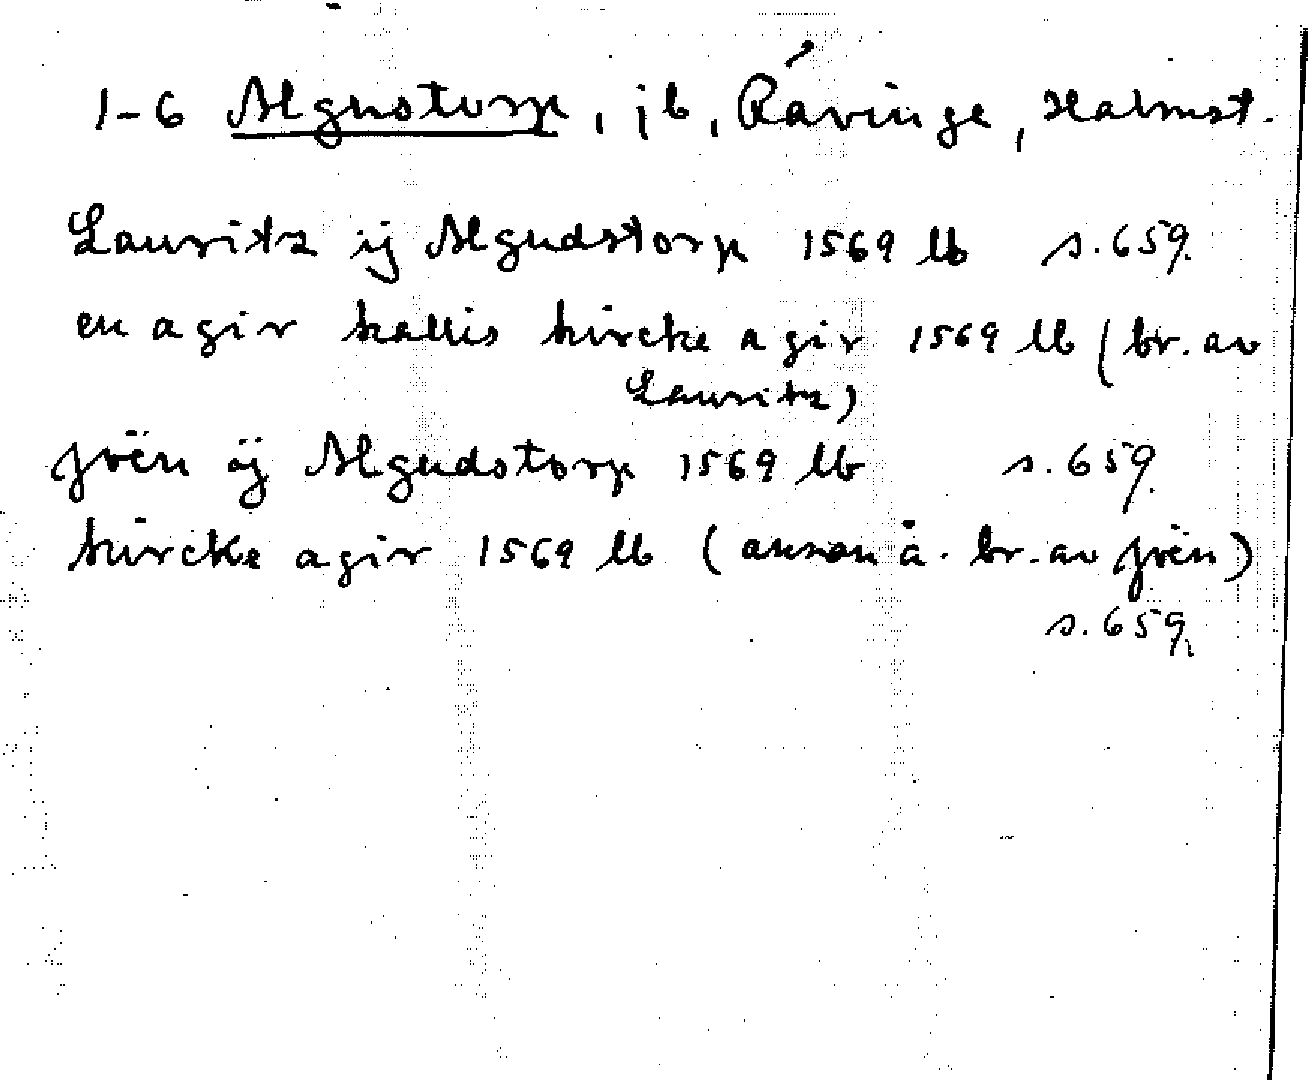 1-6 Algustorp, jb, Rávinge, Halmst.
Lauritz ij Algudstorp 1569 lb s. 659.
en agir kallis kircke agir 1569 lb (br. av
Lauritz)
Joën ÿ Algudstorp 1569 lb s. 659.
kircke agir 1569 lb (annan å. br. av Joën)
s. 659.